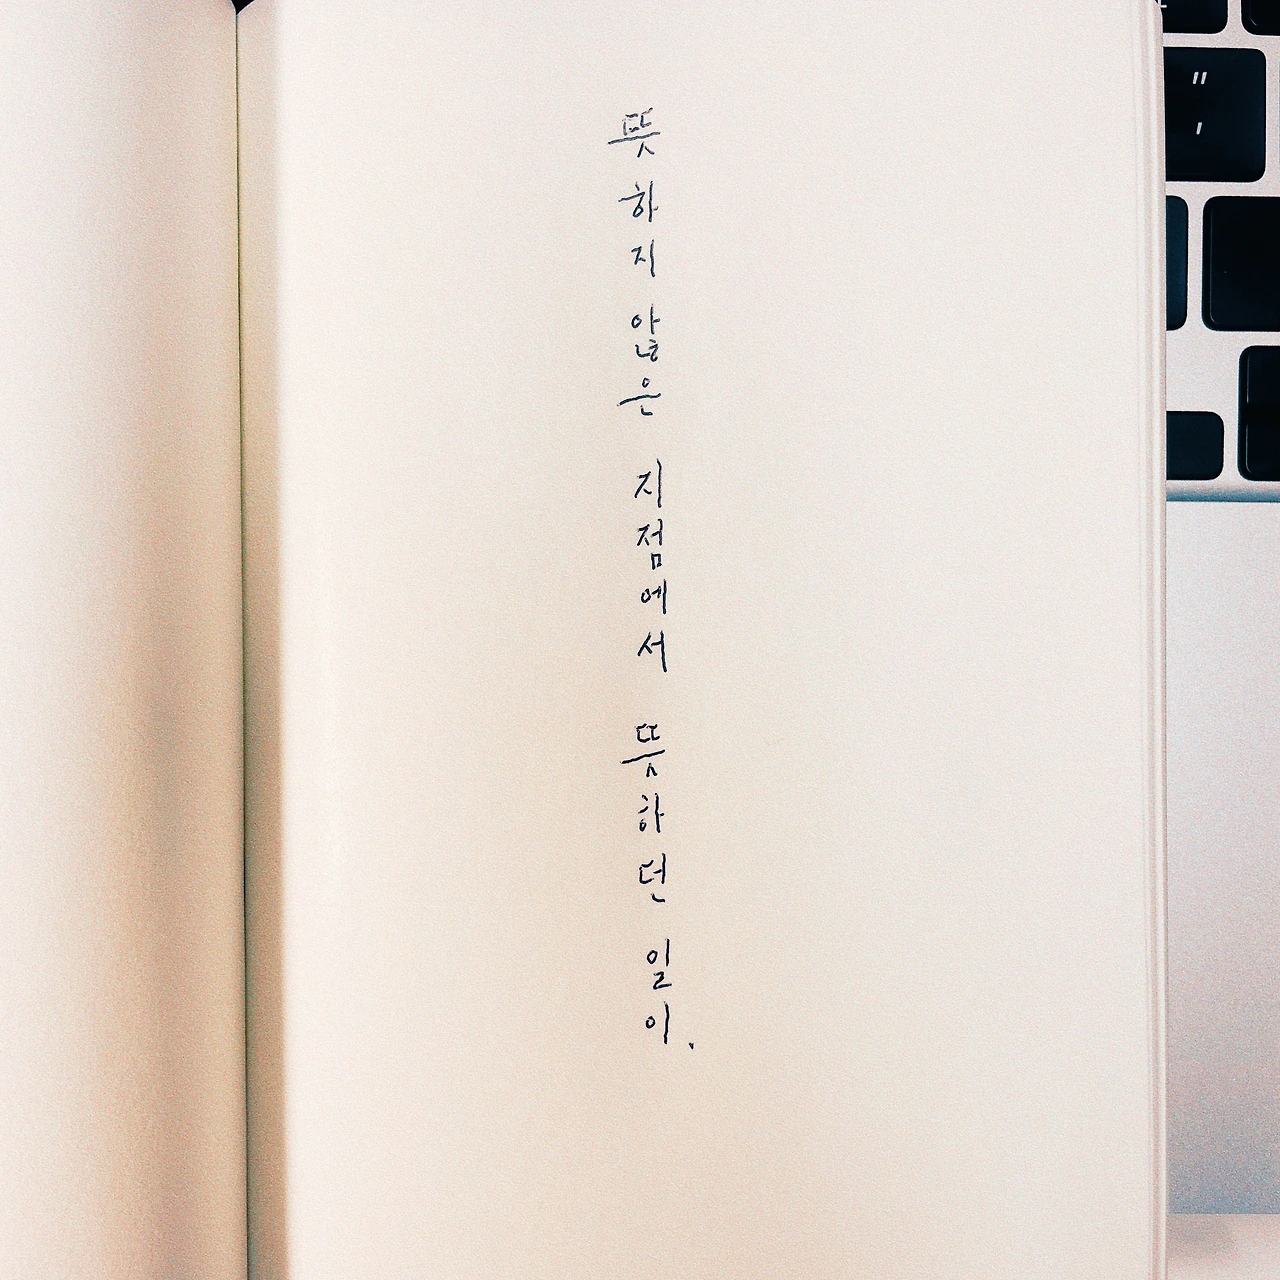 뜻하지 않은 지점에서 뜻하던 일이.
"
,